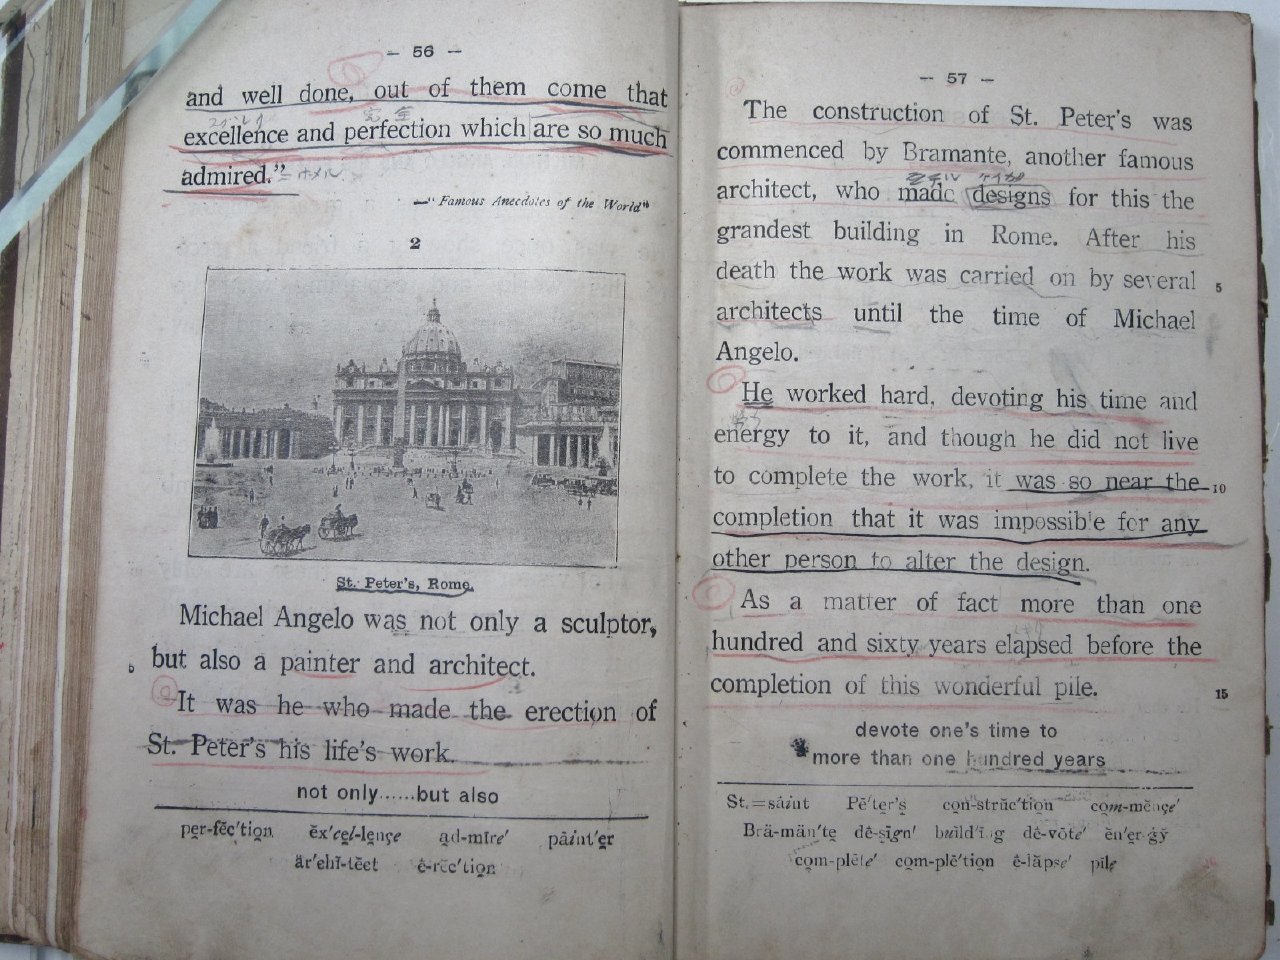 — 56 —
and well done, out of them come that
excellence and perfection which are so much
admired."
—"Famous Anecdotes of the World"
2
St. Peter's, Rome.
Michael Angelo was not only a sculptor,
5 but also a painter and architect.
It was he who made the erection of
St. Peter's his life's work.
not only......but also
pẽr-fĕc′tion ĕx′cel-lençe ad-mīre′ pāint′ẽr
är′chĭ-tĕct ē-rĕc′tion
— 57 —
The construction of St. Peter's was
commenced by Bramante, another famous
モデル ケイカ
architect, who made designs for this the
grandest building in Rome. After his
death the work was carried on by several 5
architects until the time of Michael
Angelo.
He worked hard, devoting his time and
energy to it, and though he did not live
to complete the work, it was so near the 10
completion that it was impossible for any
other person to alter the design.
As a matter of fact more than one
hundred and sixty years elapsed before the
completion of this wonderful pile. 15
devote one's time to
more than one hundred years
St.=sāint Pē′ter's con-strŭc′tion com-mĕnçe′
Brä-män′te dē-sīgn′ buĭld′ing dē-vōte′ ĕn′er-ġy̆
com-plēte′ com-plē′tion ē-lăpse′ pīle